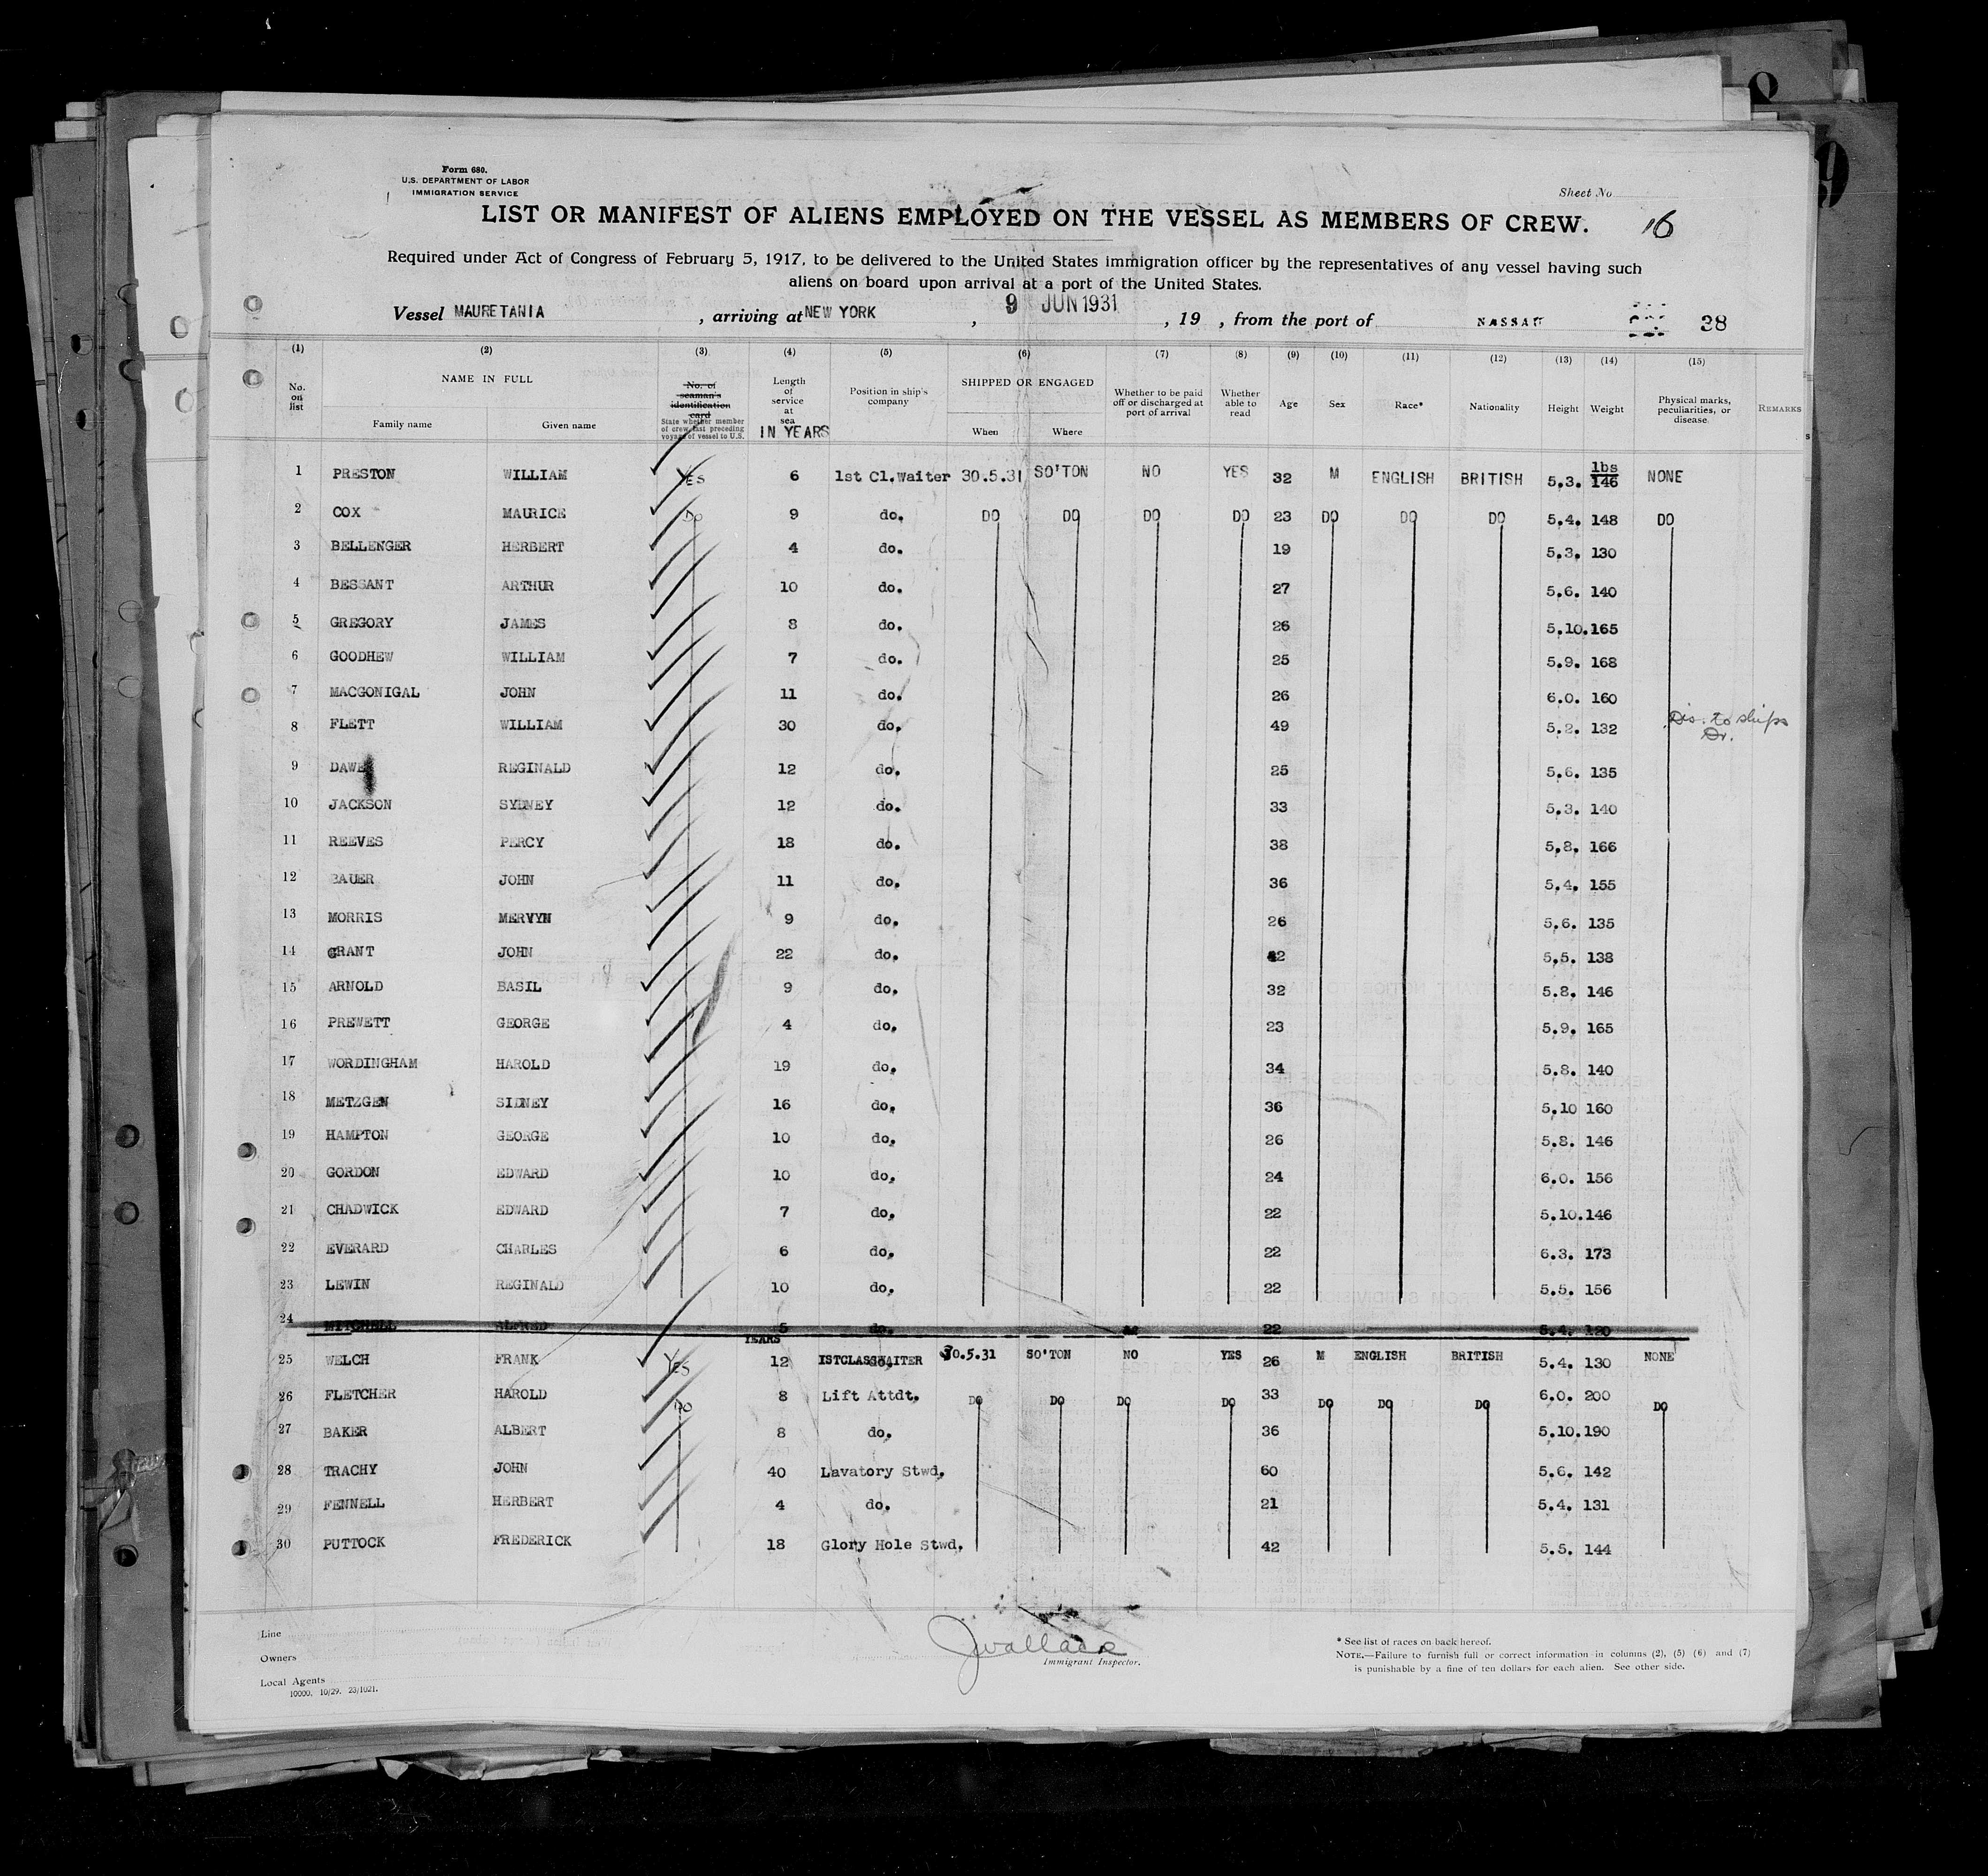 Form 680.
U.S. DEPARTMENT OF LABOR
IMMIGRATION SERVICE
Sheet No
LIST OR MANIFEST OF ALIENS EMPLOYED ON THE VESSEL AS MEMBERS OF CREW. 16
Required under Act of Congress of February 5, 1917, to be delivered to the United States immigration officer by the representatives of any vessel having such
aliens on board upon arrival at a port of the United States.
Vessel MAURETANIA, arriving at NEW YORK, 9 JUN 1931, 19 , from the port of NASSAU 38
(1) (2) (3) (4) (5) (6) (7) (8) (9) (10) (11) (12) (13) (14) (15)
No. on list NAME IN FULL Family name Given name No. of seaman's identification card State whether member of crew last preceding voyage of vessel to U.S. Length of service at sea IN YEARS Position in ship's company SHIPPED OR ENGAGED When Where Whether to be paid off or discharged at port of arrival Whether able to read Age Sex Race* Nationality Height Weight Physical marks, peculiarities, or disease REMARKS
1 PRESTON WILLIAM YES 6 1st Cl.Waiter 30.5.31 SO'TON NO YES 32 M ENGLISH BRITISH 5.3. lbs 146 NONE
2 COX MAURICE DO 9 do. DO DO DO DO 23 DO DO DO 5.4. 148 DO
3 BELLENGER HERBERT 4 do. 19 5.3. 130
4 BESSANT ARTHUR 10 do. 27 5.6. 140
5 GREGORY JAMES 8 do. 26 5.10.165
6 GOODHEW WILLIAM 7 do. 25 5.9. 168
7 MACGONIGAL JOHN 11 do. 26 6.0. 160
8 FLETT WILLIAM 30 do. 49 5.2. 132 Dis. to ships Dr.
9 DAWE REGINALD 12 do. 25 5.6. 135
10 JACKSON SYDNEY 12 do. 33 5.3. 140
11 REEVES PERCY 18 do. 38 5.8. 166
12 BAUER JOHN 11 do. 36 5.4. 155
13 MORRIS MERVYN 9 do. 26 5.6. 135
14 GRANT JOHN 22 do. 42 5.5. 138
15 ARNOLD BASIL 9 do. 32 5.8. 146
16 PREWETT GEORGE 4 do. 23 5.9. 165
17 WORDINGHAM HAROLD 19 do. 34 5.8. 140
18 METZGEN SIDNEY 16 do. 36 5.10 160
19 HAMPTON GEORGE 10 do. 26 5.8. 146
20 GORDON EDWARD 10 do. 24 6.0. 156
21 CHADWICK EDWARD 7 do. 22 5.10.146
22 EVERARD CHARLES 6 do. 22 6.3. 173
23 LEWIN REGINALD 10 do. 22 5.5. 156
24 MITCHELL ALFRED 5 do. 22 5.4. 120
YEARS
25 WELCH FRANK YES 12 1STCLASSWAITER 30.5.31 SO'TON NO YES 26 M ENGLISH BRITISH 5.4. 130 NONE
26 FLETCHER HAROLD DO 8 Lift Attdt. DO DO DO DO 33 DO DO DO 6.0. 200 DO
27 BAKER ALBERT 8 do. 36 5.10.190
28 TRACHY JOHN 40 Lavatory Stwd. 60 5.6. 142
29 FENNELL HERBERT 4 do. 21 5.4. 131
30 PUTTOCK FREDERICK 18 Glory Hole Stwd. 42 5.5. 144
Line
Owners
Local Agents
10000. 10/29. 23/1021.
JWallace
Immigrant Inspector.
* See list of races on back hereof.
NOTE.—Failure to furnish full or correct information in columns (2), (5) (6) and (7)
is punishable by a fine of ten dollars for each alien. See other side.